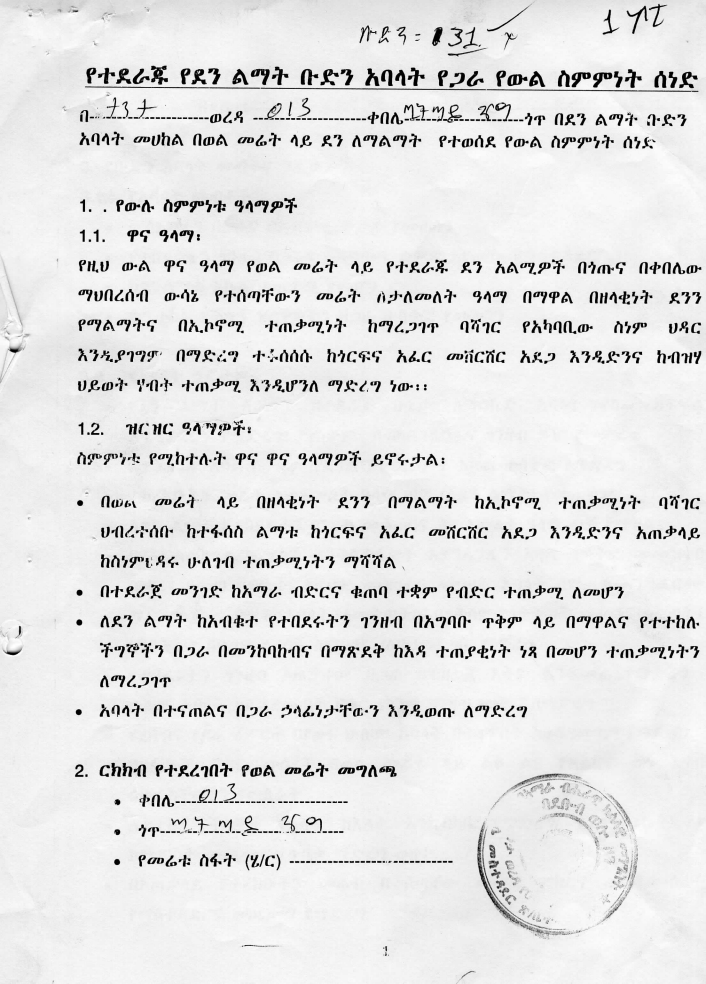 ቡድን = 31
የተደራጁ የደን ልማት ቡድን አባላት የጋራ የውል ስምምነት ሰነድ
በ-----ወረዳ 013 ቀበሌ-----ጎጥ በደን ልማት ቡድን
አባላት መሀከል በወል መሬት ላይ ደን ለማልማት የተወሰደ የውል ስምምነት ሰነድ
1. . የውሉ ስምምነቱ ዓላማዎች
1.1. ዋና ዓላማ፡
የዚህ ውል ዋና ዓላማ የወል መሬት ላይ የተደራጁ ደን አልሚዎች በጎጡና በቀበሌው
ማህበረሰብ ውሳኔ የተሰጣቸውን መሬት ለታለመለት ዓላማ በማዋል በዘላቂነት ደንን
የማልማትና በኢኮኖሚ ተጠቃሚነት ከማረጋገጥ ባሻገር የአካባቢው ስነም ህዳር
እንዲያገግም በማድረግ ከጎርፍና አፈር መሸርሸር አደጋ እንዲድንና ከብዝሃ
ህይወት ሃብት ተጠቃሚ እንዲሆንለ ማድረግ ነው፡፡
1.2. ዝርዝር ዓላማዎች፡
ስምምነቱ የሚከተሉት ዋና ዋና ዓላማዎች ይኖሩታል፡
• በወል መሬት ላይ በዘላቂነት ደንን በማልማት ከኢኮኖሚ ተጠቃሚነት ባሻገር
ህብረተሰቡ ከተፋሰስ ልማቱ ከጎርፍና አፈር መሸርሸር አደጋ እንዲድንና አጠቃላይ
ከስነምህዳሩ ሁለገብ ተጠቃሚነትን ማሻሻል
• በተደራጀ መንገድ ከአማራ ብድርና ቁጠባ ተቋም የብድር ተጠቃሚ ለመሆን
• ለደን ልማት ከአብቁተ የተበደሩትን ገንዘብ በአግባቡ ጥቅም ላይ በማዋልና የተተከሉ
ችግኞችን በጋራ በመንከባከብና በማጽደቅ ከእዳ ተጠያቂነት ነጻ በመሆን ተጠቃሚነትን
ለማረጋገጥ
• አባላት በተናጠልና በጋራ ኃላፊነታቸውን እንዲወጡ ለማድረግ
2. ርክክብ የተደረገበት የወል መሬት መግለጫ
• ቀበሌ 013
• ጎጥ
• የመሬቱ ስፋት (ሄ/ር) -----
1